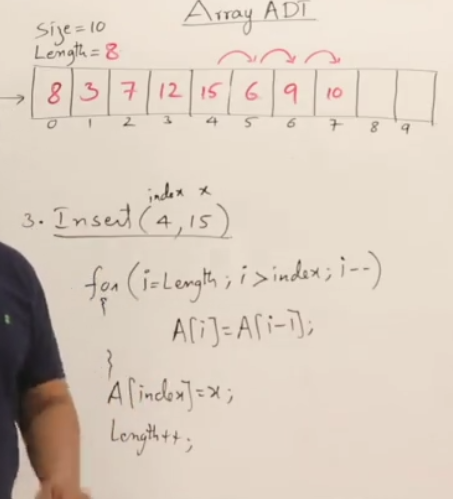 Array ADT
Size=10
Length=8
8 3 7 12 15 6 9 10
0 1 2 3 4 5 6 7 8 9
index x
3. Insert(4,15)
for(i=Length; i>index; i--)
{
A[i]=A[i-1];
}
A[index]=x;
Length++;